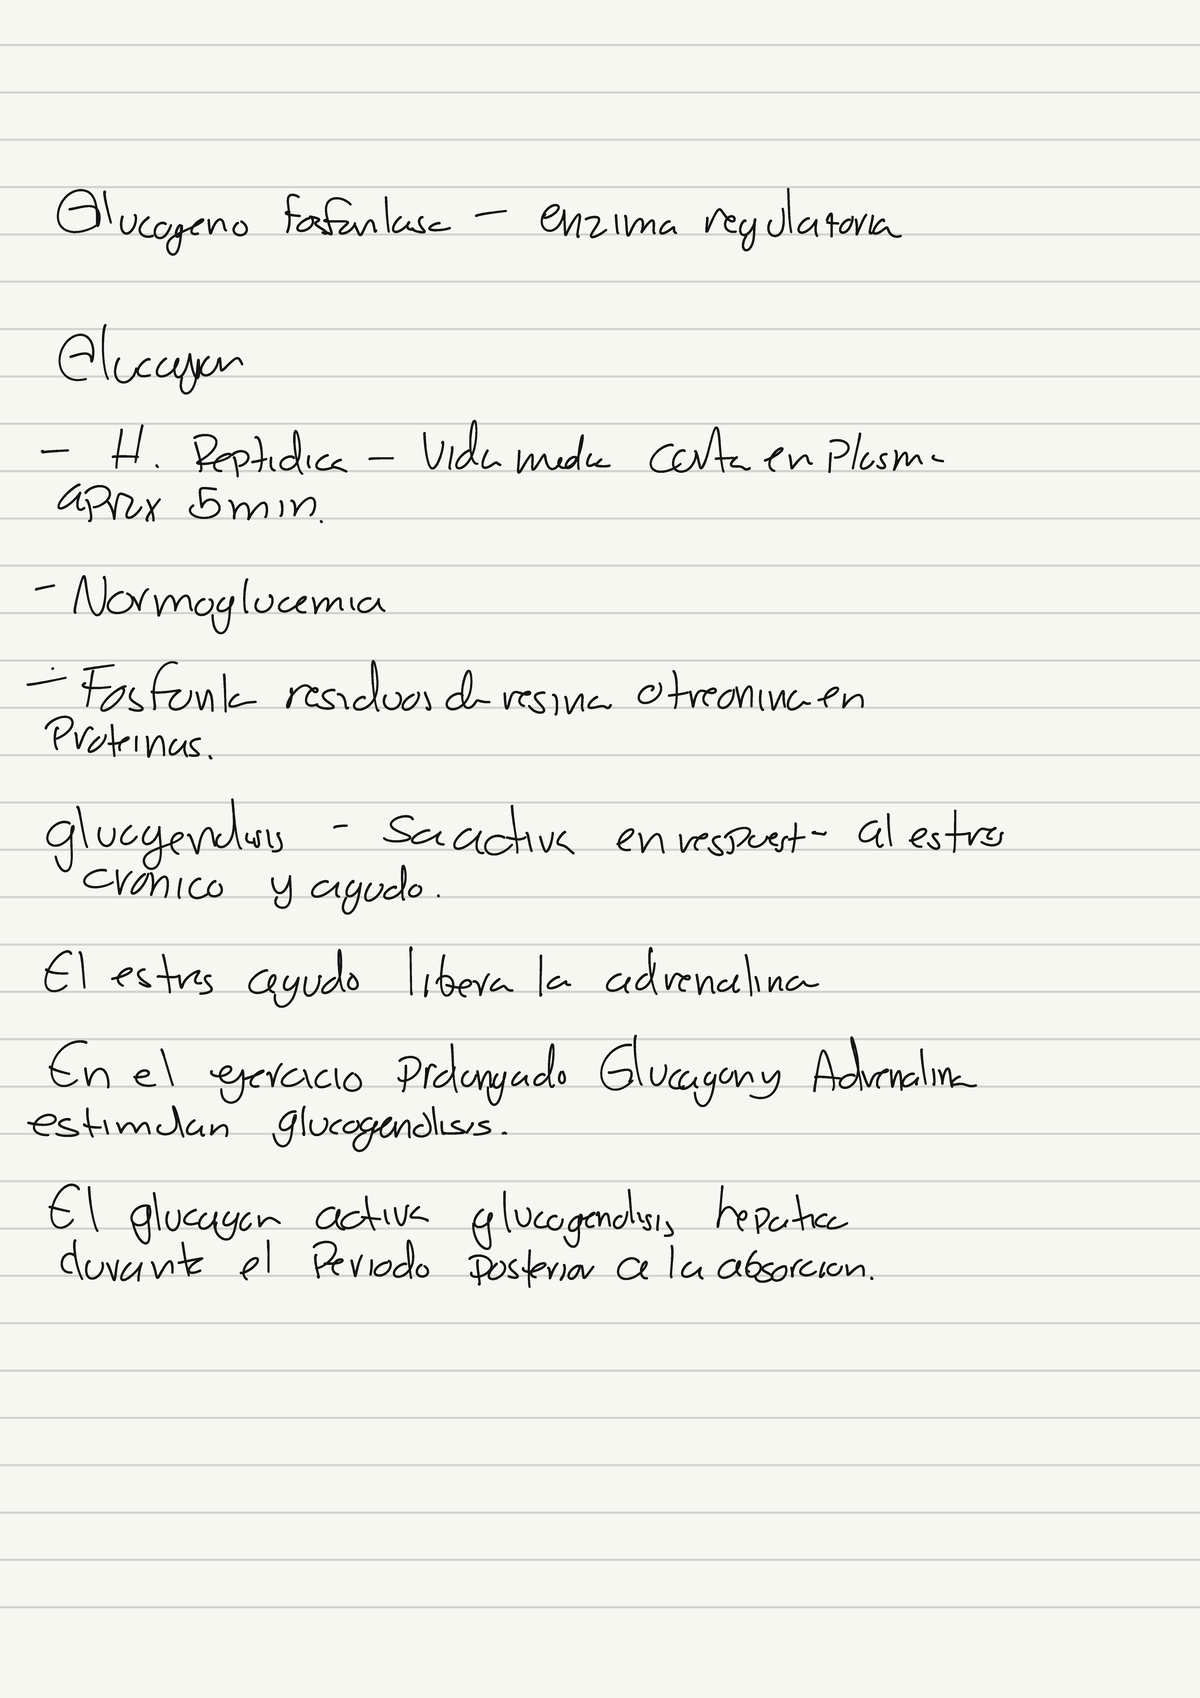 Glucogeno fosforilasa - enzima regulatoria
Glucagon
- H. Peptidica - Vida media corta en Plasma
aprox 5 min.
- Normoglucemia
- Fosforila residuos de resina o treonina en
Proteinas.
glucogenolisis - Sa activa en respuesta al estres
cronico y agudo.
El estres agudo libera la adrenalina
En el ejercicio Prolongado Glucagon y Adrenalina
estimulan glucogenolisis.
El glucagon activa glucogenolisis hepatica
durante el Periodo Posterior a la absorcion.